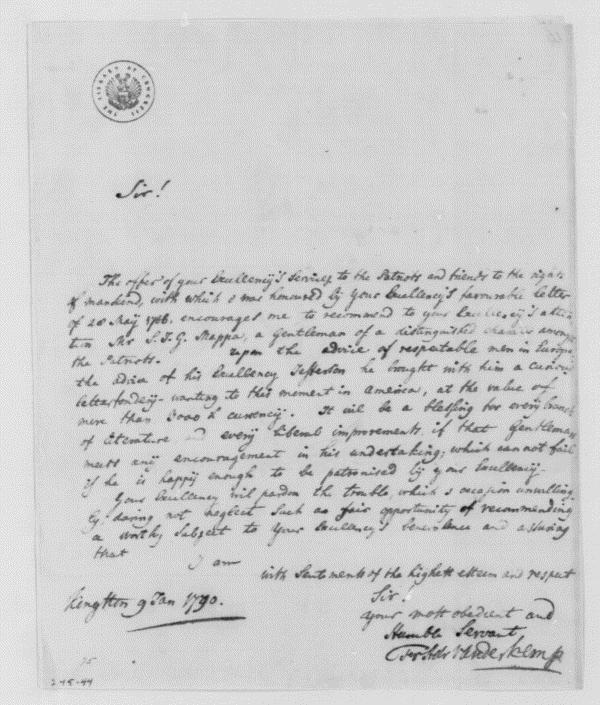 THE LIBRARY OF CONGRESS
Sir!
The offer of your Excellency's Services to the Patriots and friends to the rights
of mankind, with which I was honoured by Your Excellency's favourable letter
of 28 May 1788. encourages me to recommend to your Excellency's atten
tion Mr S. I. G. Mappa, a Gentleman of a distinguished character amongst
the Patriots. upon the advice of respectable men in Europe
the advice of his Excellency Jefferson he brought with him a curious
letterfondery- wanting to this moment in America, at the value of
more than 3000 £ currency. It will be a blessing for every branch
of literature and every liberal improvements, if that Gentleman
meets any encouragement in his undertaking; which cannot fail
if he is happy enough to be patronised by your Excellency.
Your Excellency will pardon the trouble, which I occasion unwilling
ly, daring not neglect such a fair opportunity of recommending
a worthy Subject to Your Excellency's benevolence and assuring
that
I am
with Sentiments of the highest esteem and respect
Sir!
Your most obedient and
Humble Servant
Fr Adr Vanderkemp
Kingston 9 Jan 1790.